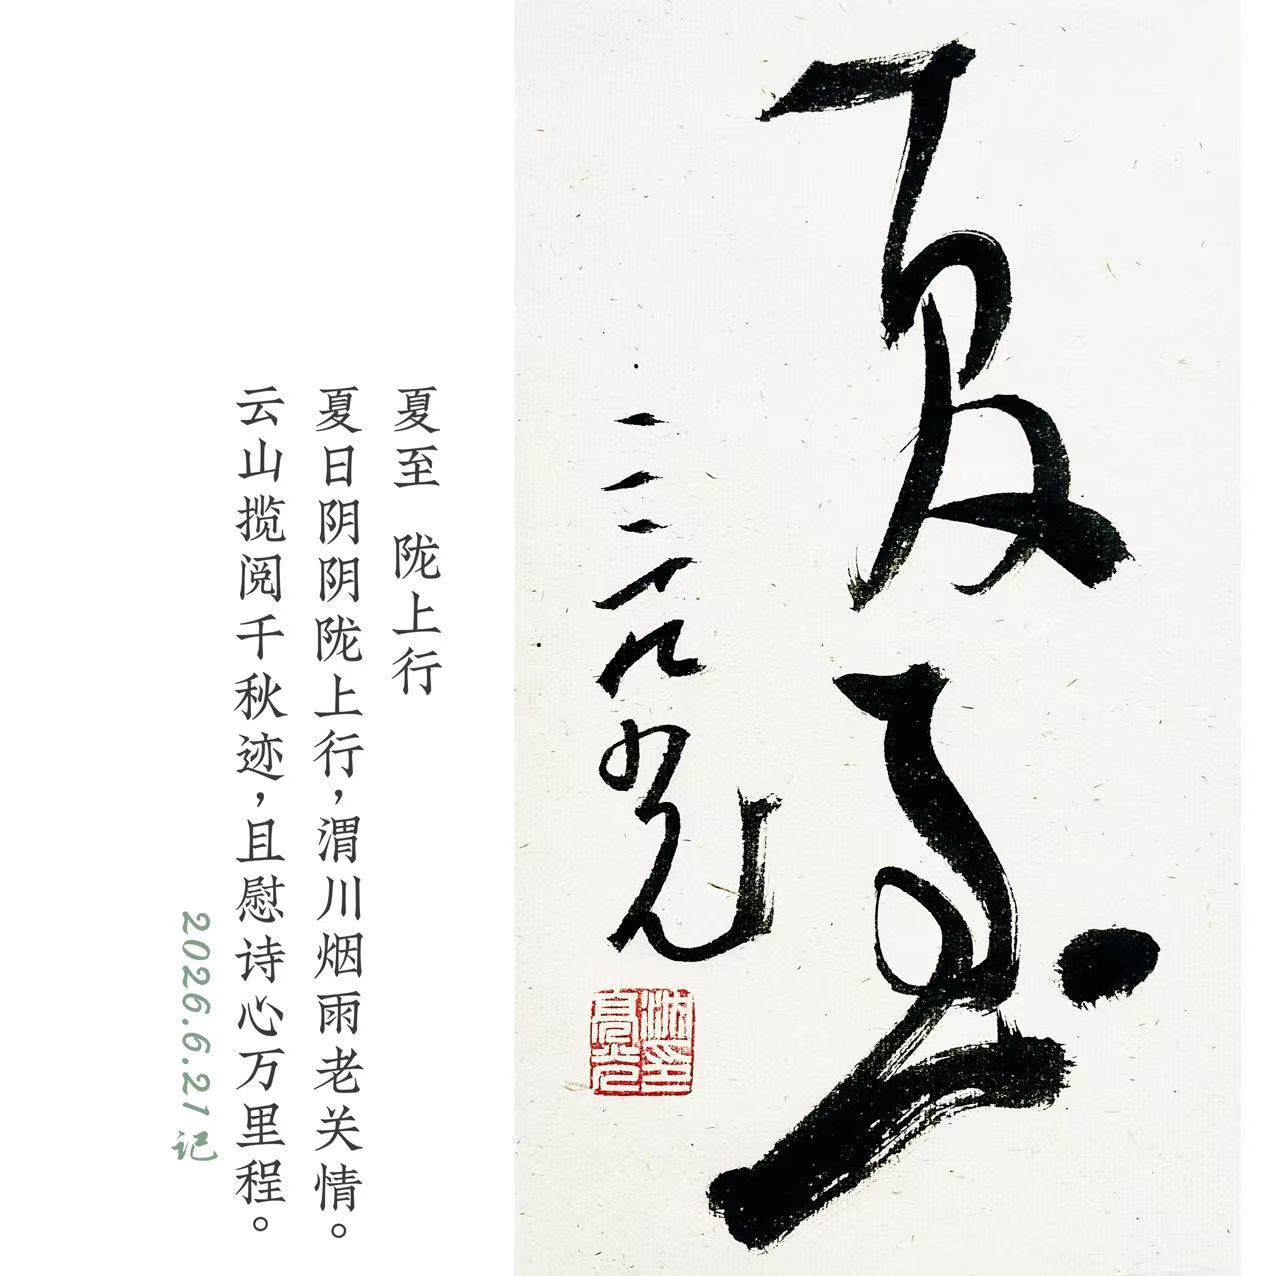 夏至
夏至 陇上行
夏日阴阴陇上行，渭川烟雨老关情。
云山揽阅千秋迹，且慰诗心万里程。
2026.6.21 记